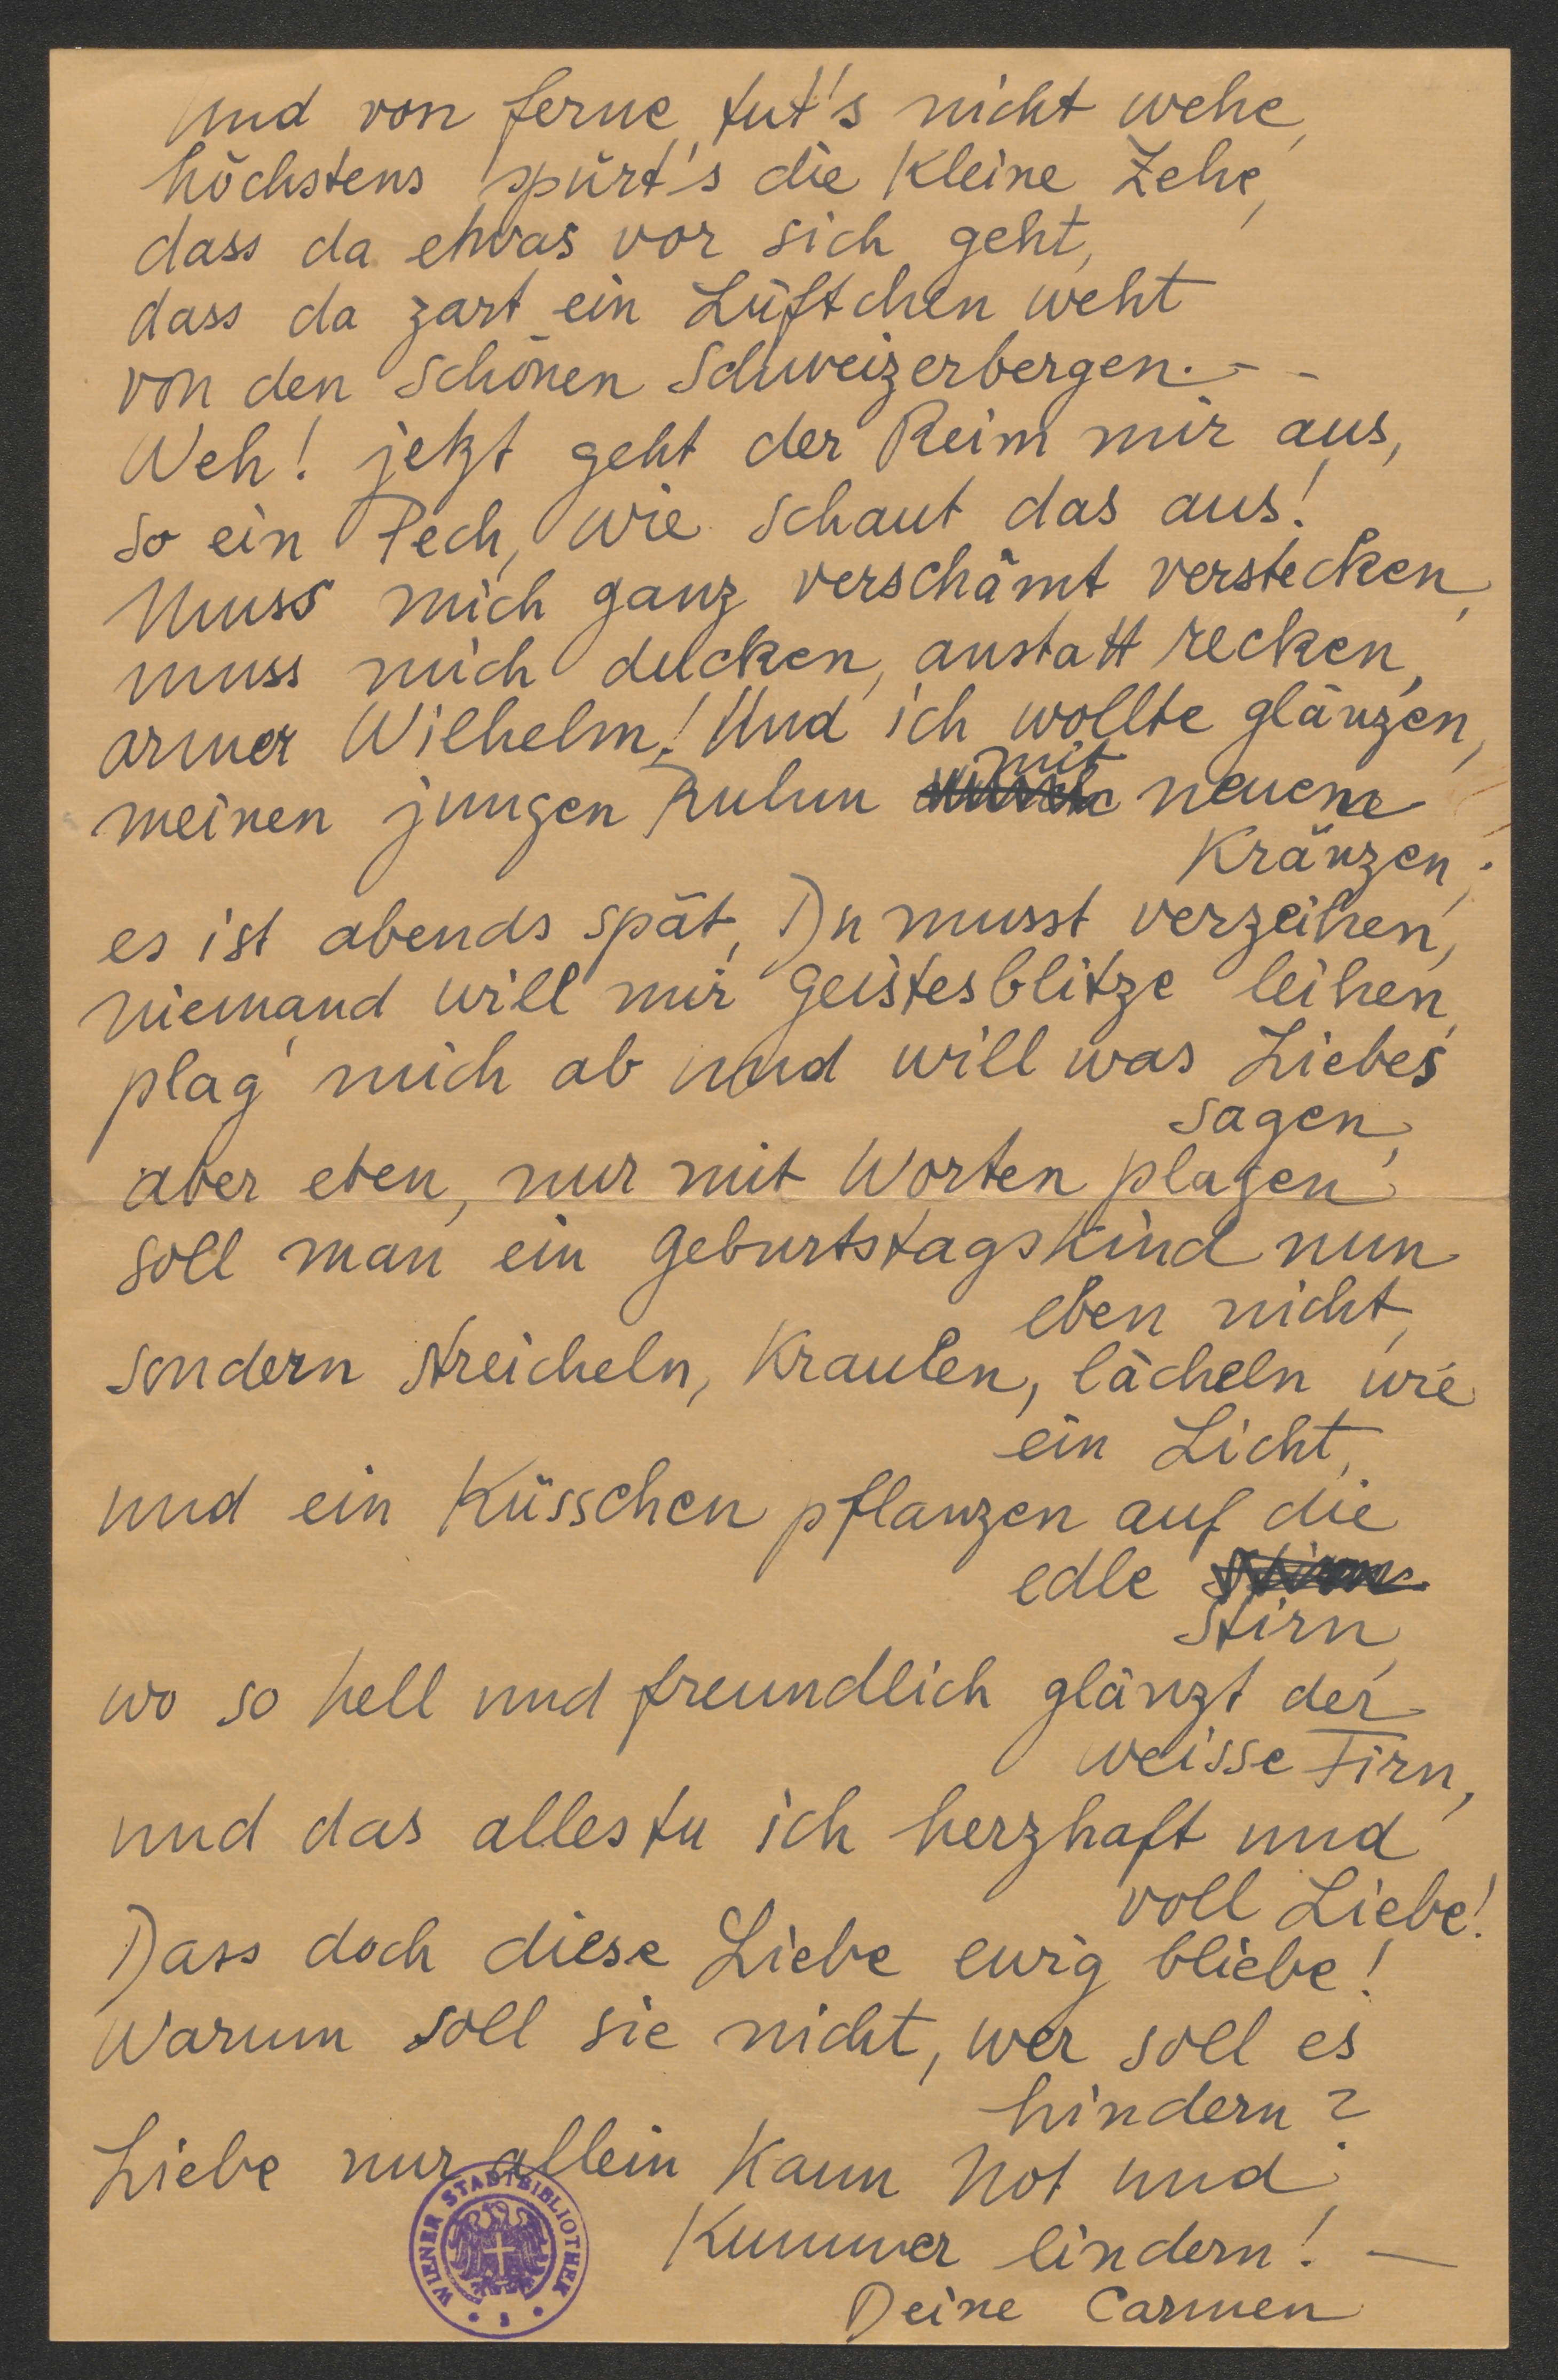 Und von ferne tut's nicht wehe,
höchstens spürt's die kleine Zehe,
dass da etwas vor sich geht,
dass da zart ein Lüftchen weht
von den schönen Schweizerbergen. - -
Weh! jetzt geht der Reim mir aus,
so ein Pech, wie schaut das aus!
Muss mich ganz verschämt verstecken,
muss mich ducken, anstatt recken,
armer Wilhelm! Und ich wollte glänzen,
mit
meinen jungen Ruhm neuem
Kränzen;
es ist abends spät, Du musst verzeihen,
niemand will mir Geistesblitze leihen,
plag' mich ab und will was Liebes
sagen,
aber eben, nur mit Worten plagen
soll man ein Geburtstagskind nun
eben nicht,
sondern streicheln, kraulen, lächeln wie
ein Licht,
und ein Küsschen pflanzen auf die
edle
Stirn,
wo so hell und freundlich glänzt der
weisse Firn,
und das alles tu ich herzhaft und
voll Liebe!
Dass doch diese Liebe ewig bliebe!
Warum soll sie nicht, wer soll es
hindern?
Liebe nur allein kann Not und
Kummer lindern! —
Deine Carmen
WIENER STADTBIBLIOTHEK